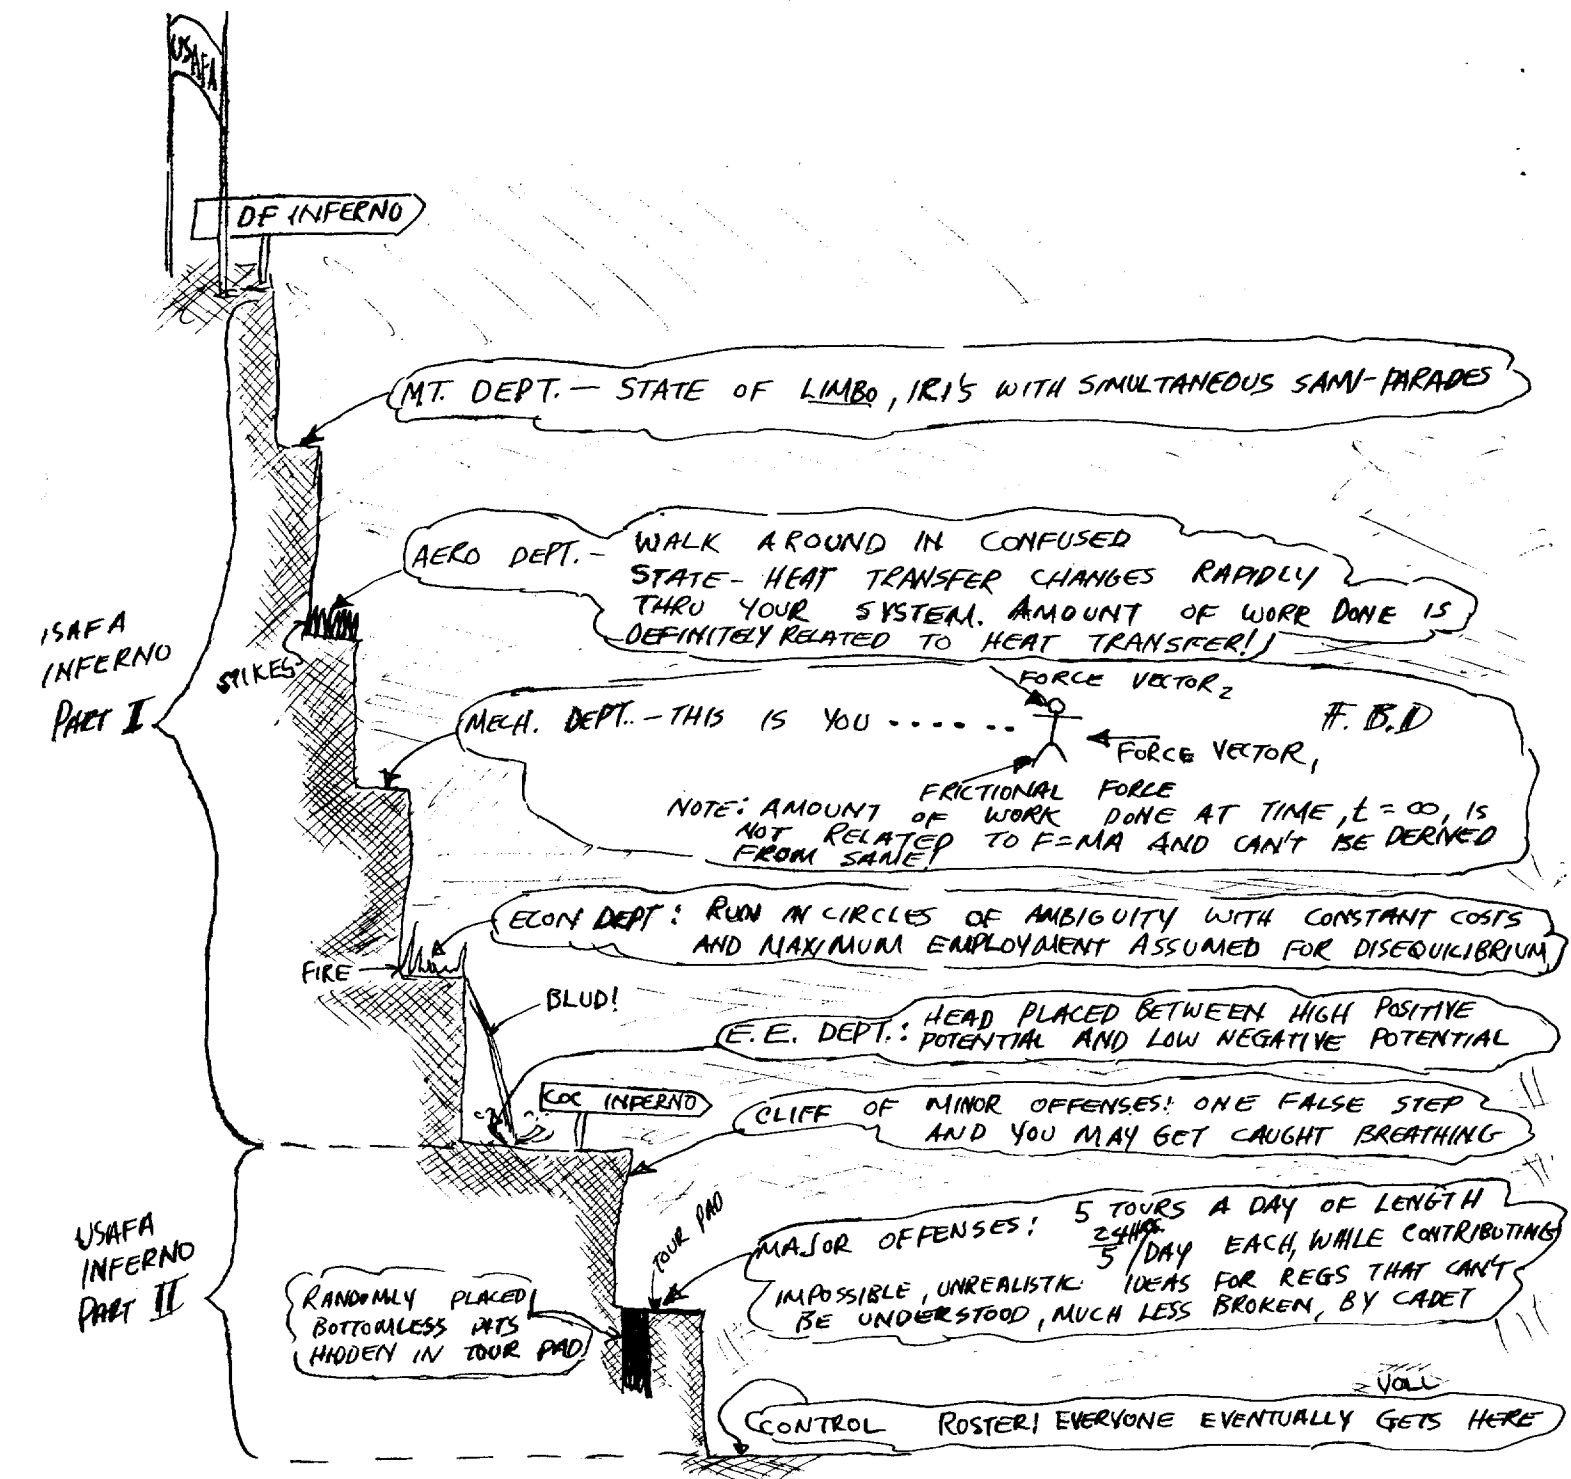 USAFA
DF INFERNO
MT. DEPT. — STATE OF LIMBO, IRI'S WITH SIMULTANEOUS SAMI-PARADES
AERO DEPT. — WALK AROUND IN CONFUSED
STATE - HEAT TRANSFER CHANGES RAPIDLY
THRU YOUR SYSTEM. AMOUNT OF WORK DONE IS
DEFINITELY RELATED TO HEAT TRANSFER!
SPIKES
ISAFA
INFERNO
PART I
FORCE VECTOR2
MECH. DEPT. — THIS IS YOU . . . . . .
F.B.D
FORCE VECTOR,
FRICTIONAL FORCE
NOTE: AMOUNT OF WORK DONE AT TIME, t = ∞, IS
NOT RELATED TO F=MA AND CAN'T BE DERIVED
FROM SAME!
ECON DEPT: RUN IN CIRCLES OF AMBIGUITY WITH CONSTANT COSTS
AND MAXIMUM EMPLOYMENT ASSUMED FOR DISEQUILIBRIUM
FIRE
BLUD!
E.E. DEPT.: HEAD PLACED BETWEEN HIGH POSITIVE
POTENTIAL AND LOW NEGATIVE POTENTIAL
COC INFERNO
CLIFF OF MINOR OFFENSES! ONE FALSE STEP
AND YOU MAY GET CAUGHT BREATHING
USAFA
INFERNO
PART II
TOUR PAD
MAJOR OFFENSES: 5 TOURS A DAY OF LENGTH
24HRS./5 /DAY EACH, WHILE CONTRIBUTING
IMPOSSIBLE, UNREALISTIC IDEAS FOR REGS THAT CAN'T
BE UNDERSTOOD, MUCH LESS BROKEN, BY CADET
RANDOMLY PLACED
BOTTOMLESS PITS
HIDDEN IN TOUR PAD
CONTROL ROSTER! EVERYONE EVENTUALLY GETS HERE